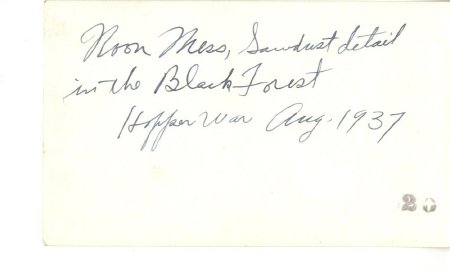 Noon Mess, Sawdust detail
in the Black Forest
Hopper War Aug. 1937
20